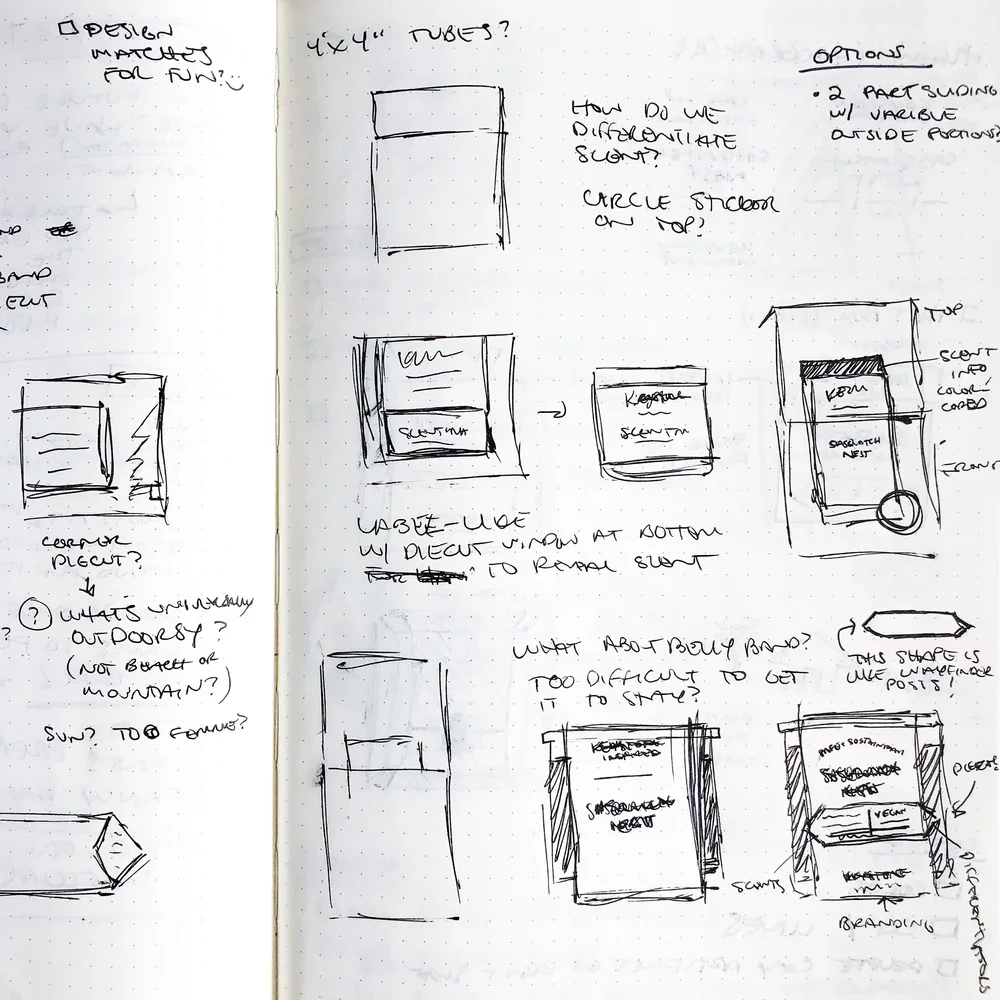 □ DESIGN
MATCHES
FOR FUN?
BAND
CORNER
DIECUT?
? WHATS UNIVERSALLY
OUTDOORSY?
(NOT BEACH OR
MOUNTAIN?)
SUN? TOO FEMME?
4"x4" TUBES?
HOW DO WE
DIFFERENTIATE
SCENT?
CIRCLE STICKER
ON TOP?
OPTIONS
• 2 PART SLIDING
W/ VARIBLE
OUTSIDE PORTIONS?
KEYSTONE
TOP
SCENT
INFO
COLOR-
CODED
SASQUATCH
NEST
FRONT
W/ DIECUT WINDOW AT BOTTOM
TO REVEAL SCENT
WHAT ABOT BELLY BAND?
TOO DIFFICULT TO GET
IT TO STAY?
THIS SHAPE IS
LIKE WAYFINDER
POSTS!
KEYSTONE
INSPIRED
SASQUATCH
NEST
SASQUATCH
NEST
VEGAN
KEYSTONE
SCENTS
BRANDING